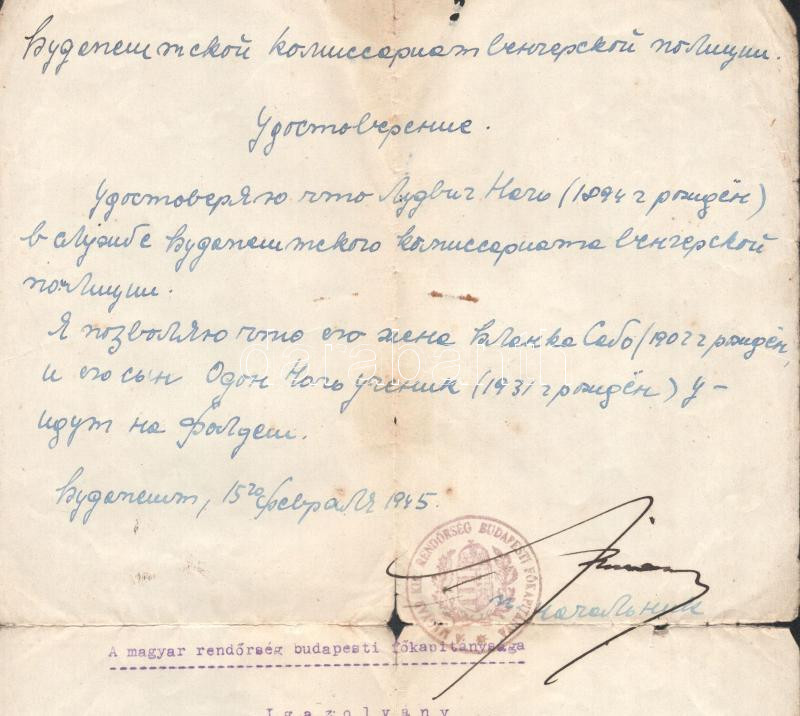 Будапештской комиссариат венгерской полиции.
Удостоверение.
Удостоверяю что Лудвич Нагь (1894 г рождён)
в службе Будапештского комиссариата венгерской
полиции.
Я позволяю что его жена Бланка Сабо (1902 г рождён,
и его сын Одон Нагь ученик (1931 г рождён) у-
идут на Фолдеш.
Будапешт, 15го февраля 1945.
начальник
A MAGYAR KIR. RENDŐRSÉG BUDAPESTI FŐKAPITÁNYSÁGA
A magyar rendőrség budapesti főkapitánysága
Igazolvány